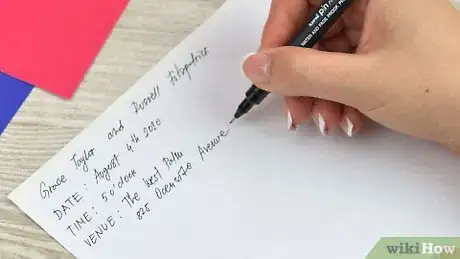 Grace Taylor and Russell Fitzpatrick
DATE: August 4th 2020
TIME: 5 o'clock
VENUE: The West Palm
825 Oceansite Avenue
uni pin
WATER AND FADE PROOF, PIGMENT
wikiHow